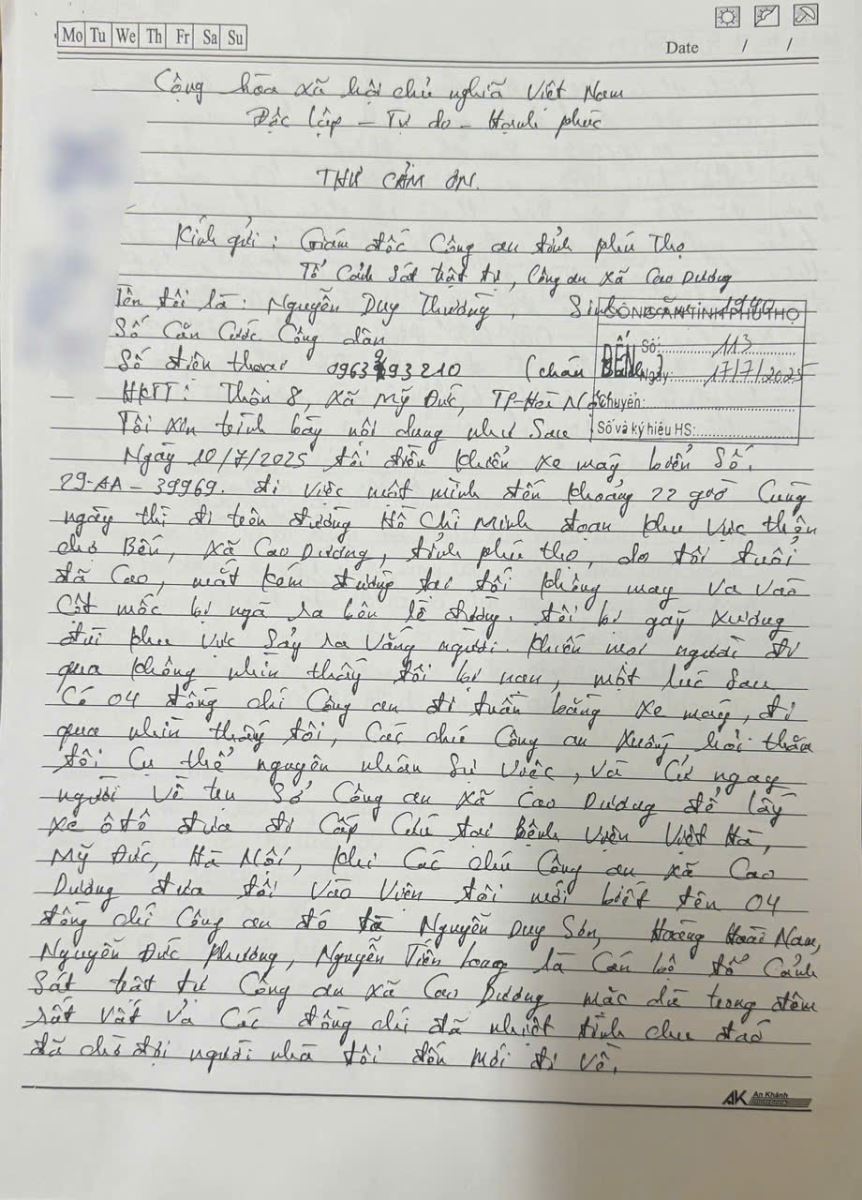 Mo Tu We Th Fr Sa Su
Date / /
Cộng hòa xã hội chủ nghĩa Việt Nam
Độc lập - Tự do - Hạnh phúc
THƯ CẢM ƠN.
Kính gửi: Giám đốc Công an tỉnh phú Thọ
Tổ Cảnh Sát trật tự, Công an xã Cao Dương
Tên tôi là: Nguyễn Duy Thường, Sinh 1940
CÔNG AN TỈNH PHÚ THỌ
Số Căn Cước Công dân
ĐẾN Số: 113
Số điện thoại 0963 93210 (cháu
Ngày: 17/7/2025
HKTT: Thôn 8, xã Mỹ Đức, TP-Hà Nội
Chuyển:
Tôi xin trình bày nội dung như Sau
Số và ký hiệu HS:
Ngày 10/7/2025 tôi điều khiển xe máy biển Số.
29-AA-39969. đi việc một mình đến khoảng 22 giờ Cùng
ngày thì đi trên đường Hồ Chí Minh đoạn khu vực thôn
chợ Bến, xã Cao Dương, tỉnh phú thọ, do tôi tuổi
đã Cao, mắt kém đường tối tôi không may va vào
Cột mốc bị ngã ra bên lề đường. tôi bị gãy xương
đùi khu vực Sảy ra vắng người. khiến mọi người đi
qua không nhìn thấy tôi bị nạn, một lúc Sau
Có 04 đồng chí Công an đi tuần bằng xe máy, đi
qua nhìn thấy tôi, Các chú Công an xuống hỏi thăm
tôi Cụ thể nguyên nhân Sự việc, và Cử ngay
người về trụ Sở Công an xã Cao Dương để lấy
xe ôtô đưa đi Cấp Cứu tại bệnh viện Việt Hà,
Mỹ Đức, Hà Nội, khi Các chú Công an xã Cao
Dương đưa tôi vào viện tôi mới biết tên 04
đồng chí Công an đó là Nguyễn Duy Sơn, Hoàng Hoài Nam,
Nguyễn Đức Phương, Nguyễn Tiến Long là Cán bộ tổ Cảnh
Sát trật tự Công an xã Cao Dương mặc dù trong đêm
rất vất vả Các đồng chí đã nhiệt tình chu đáo
đã chờ đợi người nhà tôi đến mới đi về.
AK An Khánh